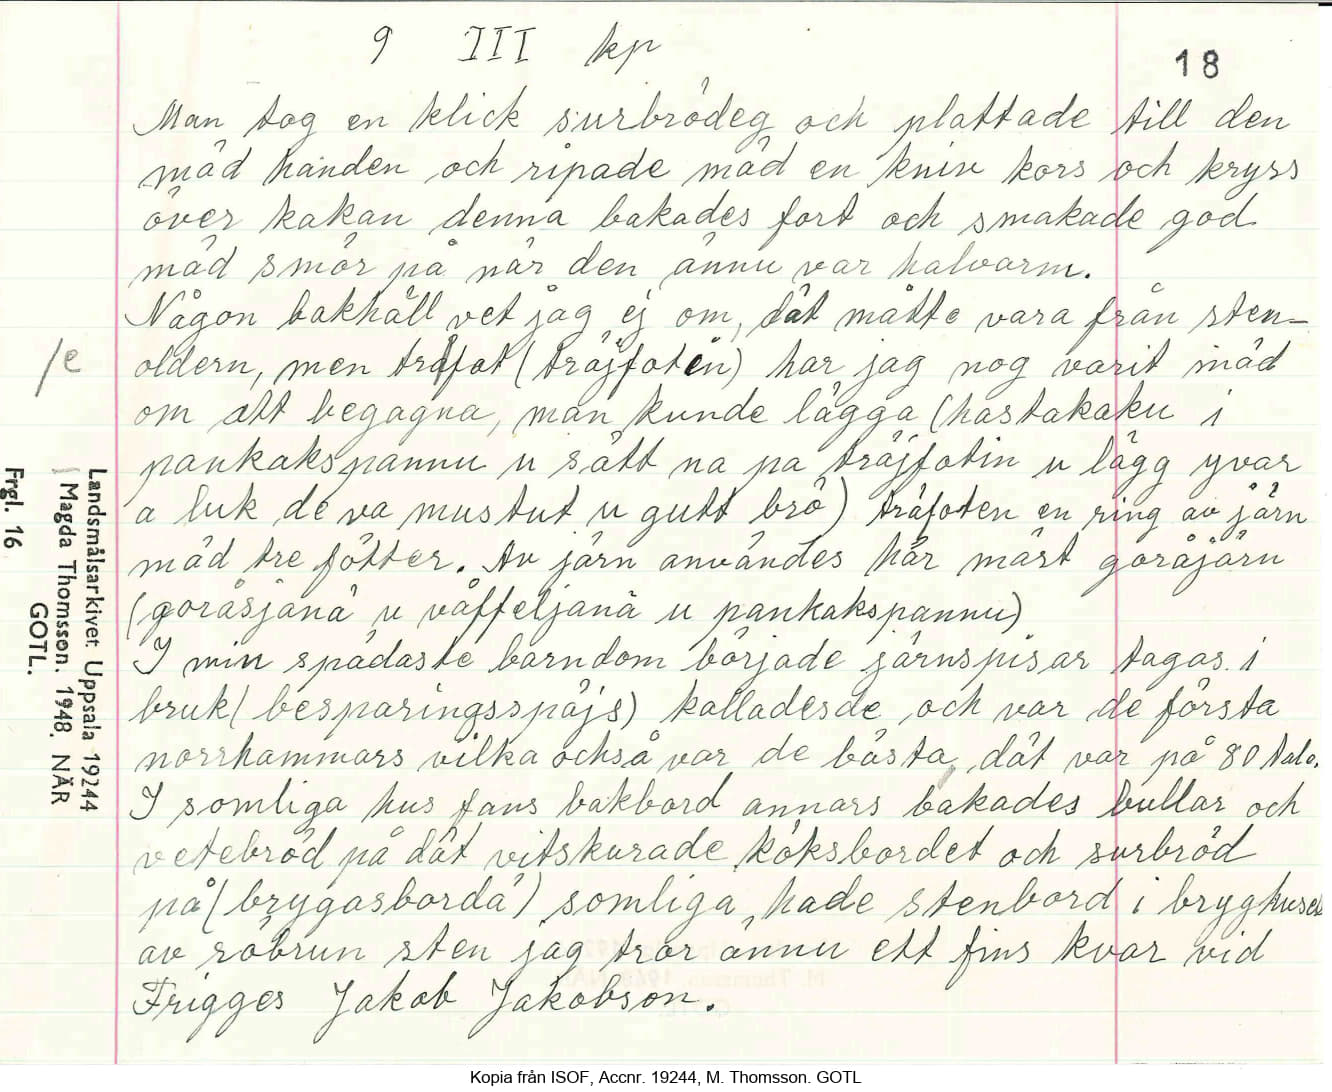 9 III kp
18
Man tog en klick surbrödeg och plattade till den
mäd handen och ripade mäd en kniv kors och kryss
över kakan denna bakades fort och smakade god
mäd smör på när den ännu var halvarm.
Någon bakhäll vet jag ej om, dät måtte vara från sten-
oldern, men träfot (träjfoten) har jag nog varit mäd
om att begagna, man kunde lägga (hastakaku i
pankakspannu u sätt na pa träjfotin u lägg yvar
a luk de va mustut u gutt brö) träfoten en ring av järn
mäd tre fötter. Av järn användes här mäst goråjärn
(goråsjänä u våffeljänä u pankakspannu)
I min spädaste barndom började järnspisar tagas i
bruk (besparingsspäjs) kalladesde och var de första
norrhammars vilka också var de bästa, dät var på 80 talo.
I somliga hus fans bakbord annars bakades bullar och
vetebröd på dät vitskurade köksbordet och surbröd
på (brygasbordä) somliga hade stenbord i bryghuset
av röbrun sten jag tror ännu ett fins kvar vid
Frigges Jakob Jakobson.
/e
Landsmålsarkivet Uppsala 19244
Magda Thomsson. 1948. NÄR
GOTL.
Frgl. 16
Kopia från ISOF, Accnr. 19244, M. Thomsson. GOTL